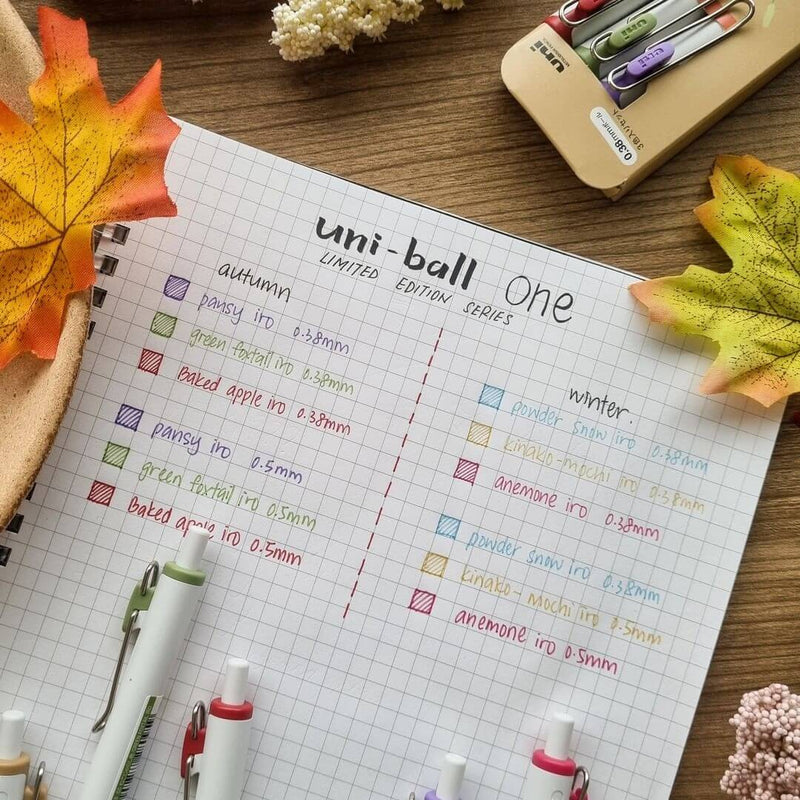 uni
0.38mmボール
3色入りセット
uni-ball one
LIMITED EDITION SERIES
autumn
pansy iro 0.38mm
green foxtail iro 0.38mm
Baked apple iro 0.38mm
pansy iro 0.5mm
green foxtail iro 0.5mm
Baked apple iro 0.5mm
winter.
powder snow iro 0.38mm
kinako-mochi iro 0.38mm
anemone iro 0.38mm
powder snow iro 0.38mm
kinako-mochi iro 0.5mm
anemone iro 0.5mm